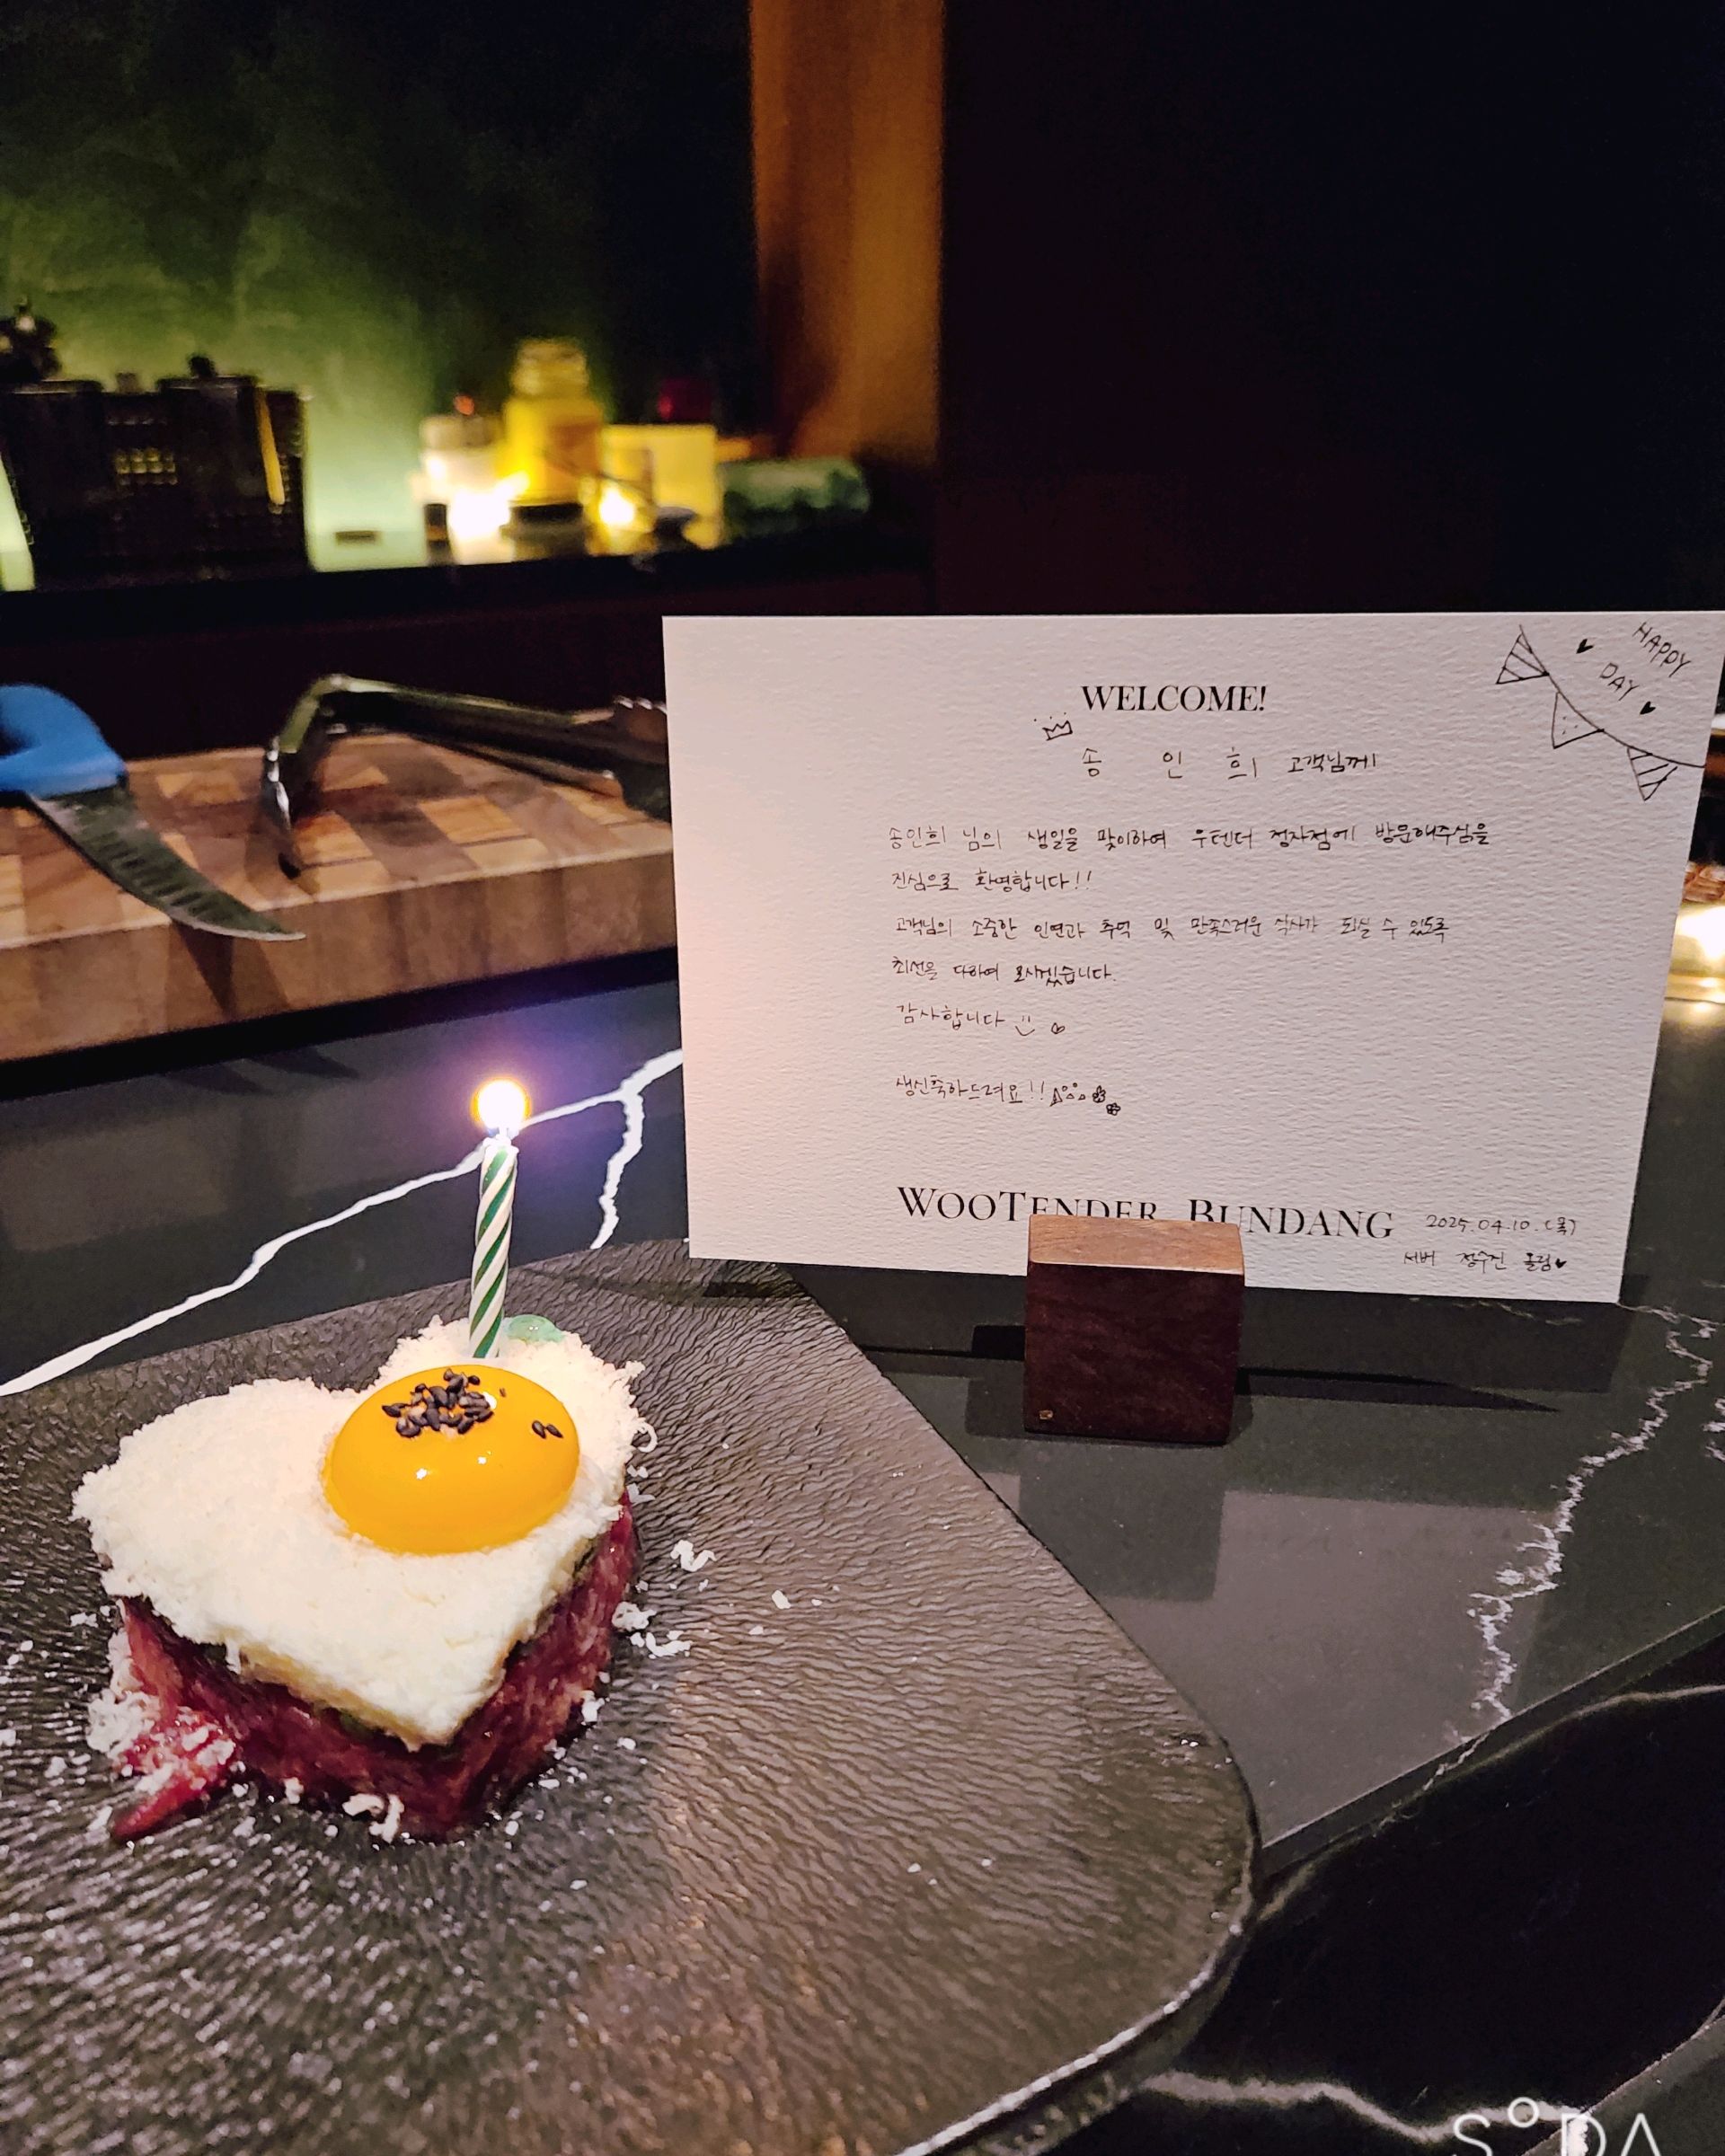 HAPPY
DAY
WELCOME!
송 인 희 고객님께
송인희 님의 생일을 맞이하여 우텐더 정자점에 방문해주심을
진심으로 환영합니다!!
고객님의 소중한 인연과 추억 및 만족스러운 식사가 되실 수 있도록
최선을 다하여 모시겠습니다.
감사합니다
생신축하드려요!!
WOOTENDER BUNDANG 2025.04.10.(목)
서버 정수진 올림♥
SODA